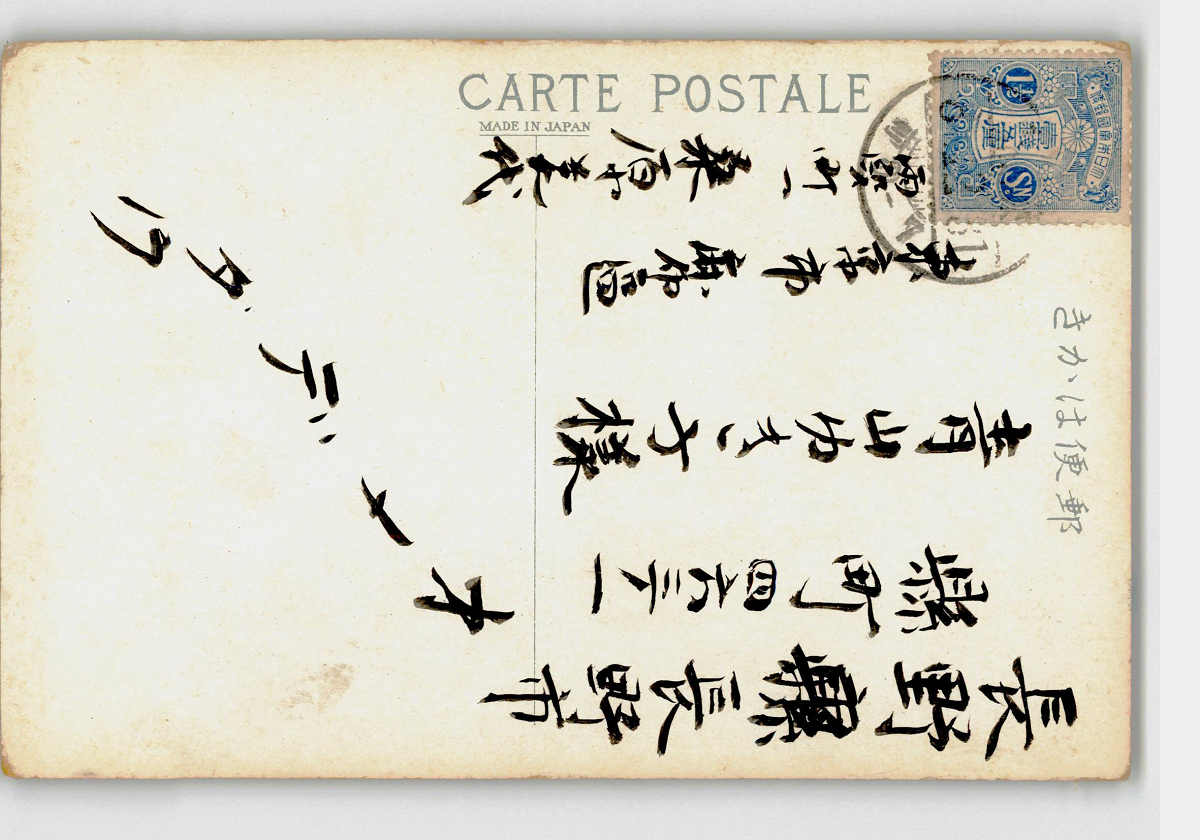 CARTE POSTALE
MADE IN JAPAN
郵便はかき
大日本帝國郵便
壹錢五厘
1½
SN
長野縣長野市
縣町四六三一
青山
子様
東京市麻布區
霞町一
桑原
オメデタウ